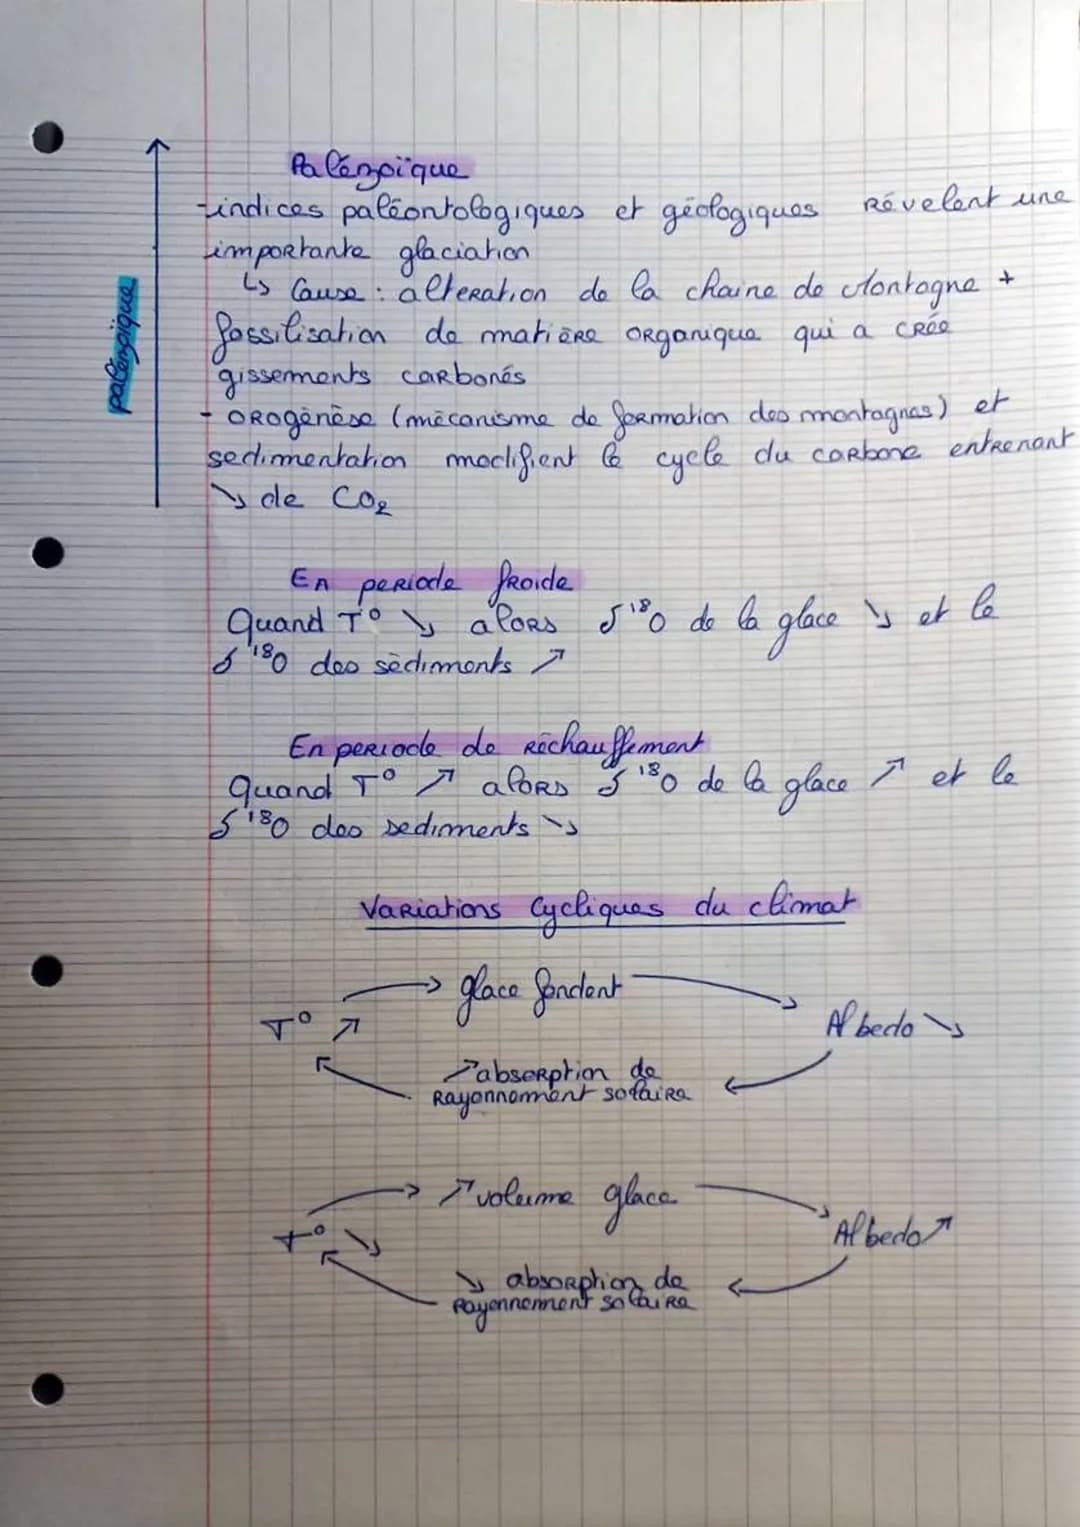 Palézoïque
-indices paléontologiques et géologiques révelent une
importante glaciation
↳ Cause : alteration de la chaine de Montagne +
fossilisation de matière organique qui a crée
gissements carbonés
- orogénèse (mécanisme de formation des montagnes) et
sedimentation modifient le cycle du carbone entrenant
↘ de CO₂
palézoique
En periode froide
Quand T° ↘ alors δ¹⁸O de la glace ↘ et le
δ¹⁸O des sédiments ↗
En periode de réchauffement
Quand T° ↗ alors δ¹⁸O de la glace ↗ et le
δ¹⁸O des sediments ↘
Variations Cycliques du climat
→ glace fondent
T° ↗
Albedo ↘
↗ absorption de
Rayonnement solaire
→ ↗ volume glace
T° ↘
Albedo ↗
↘ absorption de
Rayonnement solaire